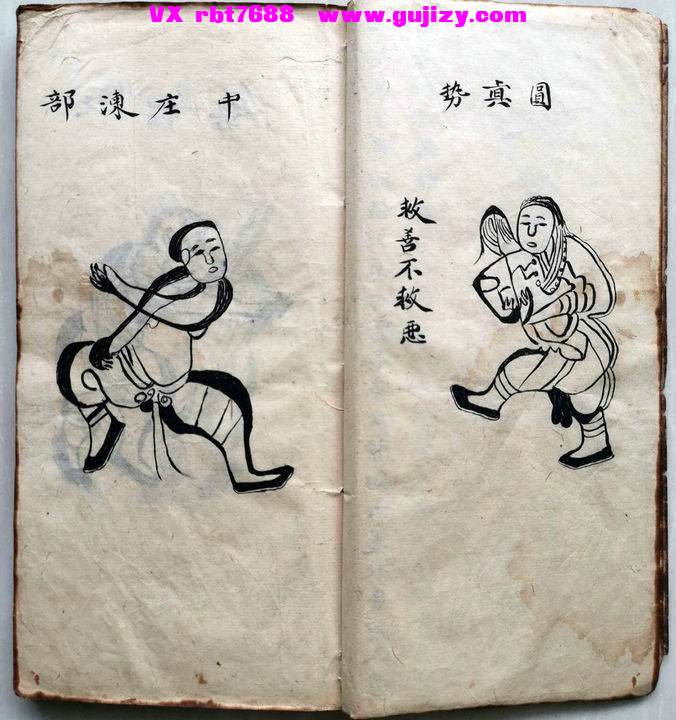 VX rbt7688 www.gujizy.com
圓真勢
救善不救恶
中庄涷部